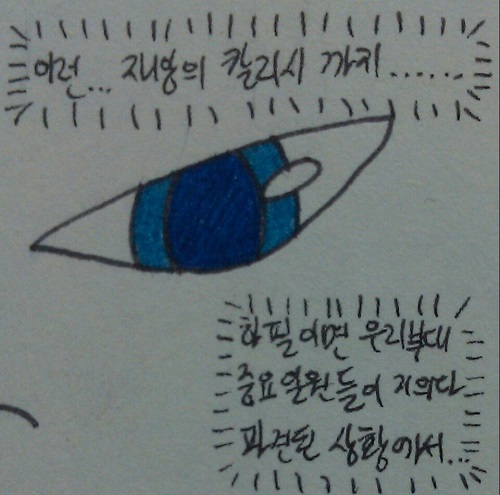 이런... 재앙의 칼리시 까지......
하필이면 우리부대
중요일원들이 거의다
파견된 상황에서...